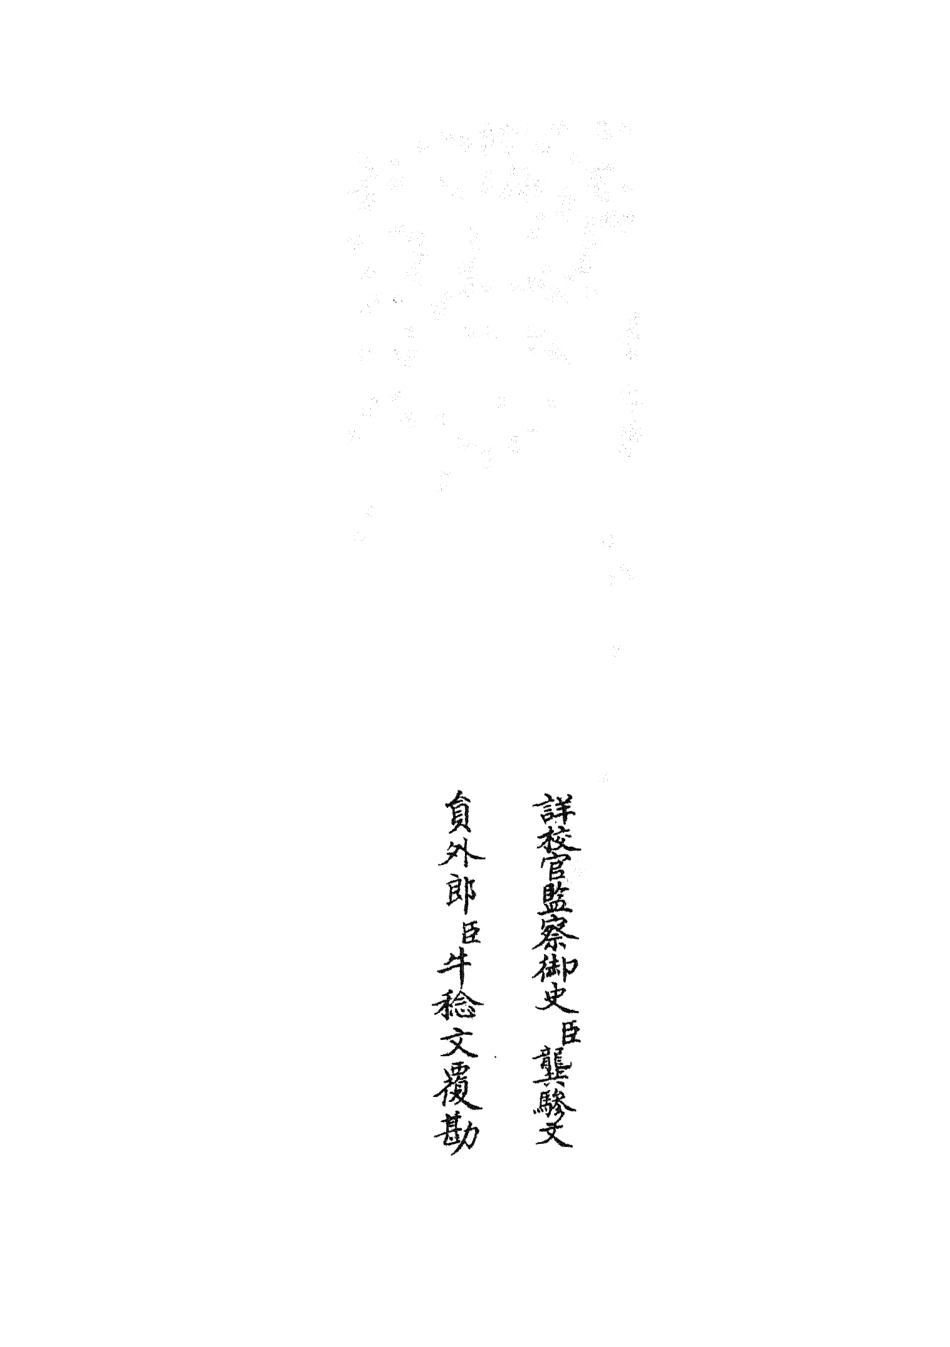 詳校官監察御史臣龔驂文
員外郎臣牛稔文覆勘